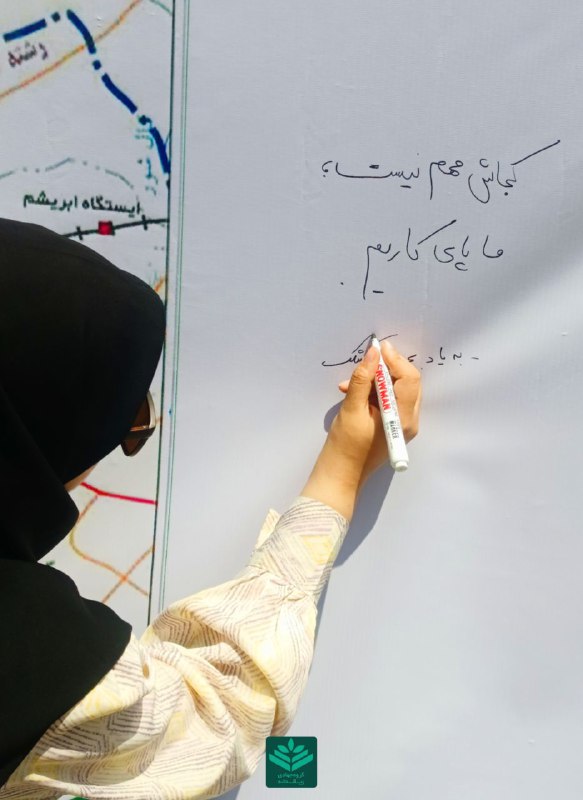 کجاش مهم نیست؛
ما پای کاریم.
- به یاد
رشته
ایستگاه ابریشم
SNOWMAN
MARKER
گروه جهادی